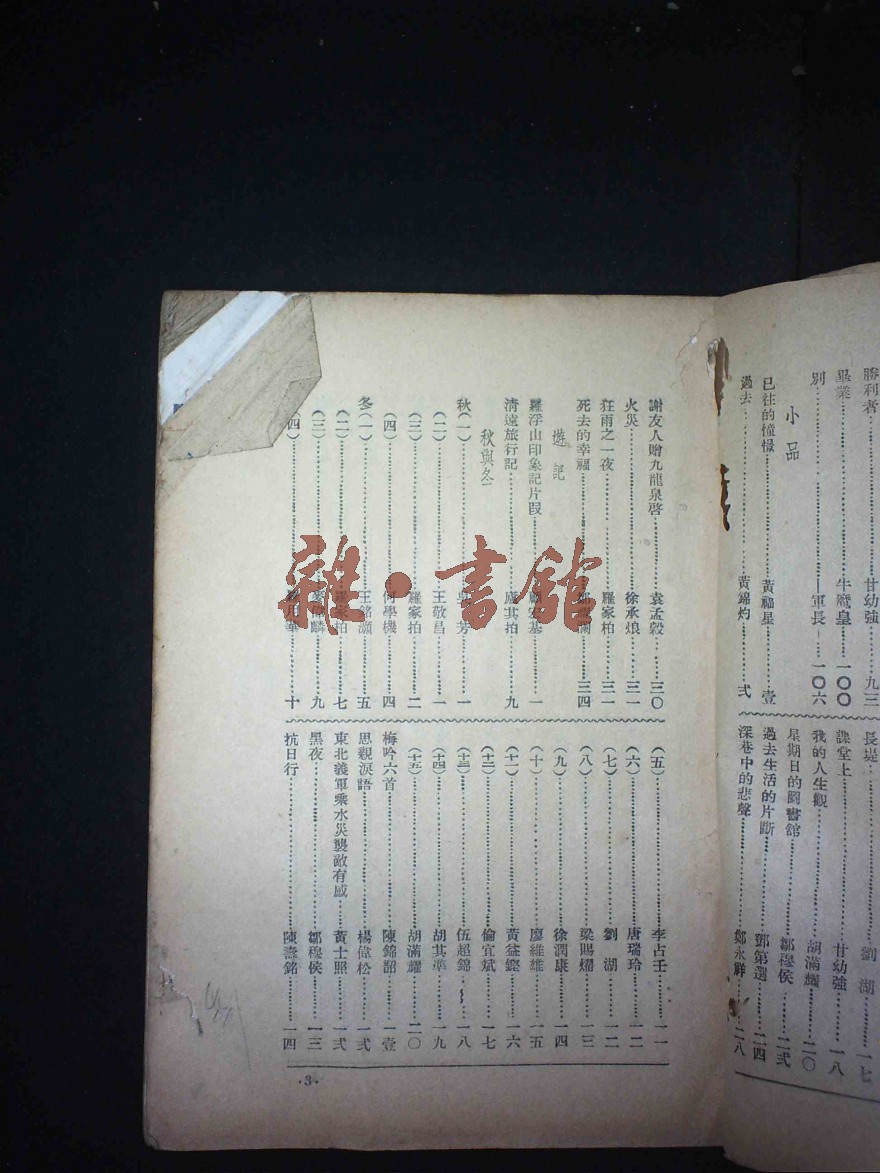 勝利者 甘幼強 九三
畢業 牛魔皇 一〇〇
別 軍長 一〇六
小品
已往的憧憬 黃福星 壹
過去 黃錦灼 弍
長堤 劉湖 一七
課堂上 甘幼強 一八
我的人生觀 胡滿耀 二〇
星期日的圖書館 鄒穆侯 二弍
過去生活的片斷 鄧第選 二四
深巷中的悲聲 鄭永群 二八
謝友人贈九龍泉啓 袁孟毅 三〇
火災 徐承烺 三一
狂雨之一夜 羅家柏 三一
死去的幸福 三四
遊記
羅浮山印象記片段 一
清遠旅行記 其拍 九
秋與冬
秋（一） 芳 一
（二） 王敬昌 一
（三） 羅家拍 二
（四） 何學機 四
冬（一） 王銘灝 五
（二） 羅家柏 七
（三） 麟 九
（四） 用華 十
（五） 李占壬 一一
（六） 唐瑞玲 一二
（七） 劉湖 一二
（八） 梁賜燿 一三
（九） 徐潤康 一四
（十） 廖維雄 一五
（十一） 黃益鏗 一六
（十二） 倫宜斌 一七
（十三） 伍超錦 一八
（十四） 胡其準 一九
（十五） 胡滿耀 二〇
梅吟六首 陳錦韶 一壹
思親淚語 楊偉松 一弍
東北義軍乘水災襲敵有感 黃士照 一弍
黑夜 鄒穆侯 一三
抗日行 陳壽銘 一四
·3·
雜·書館